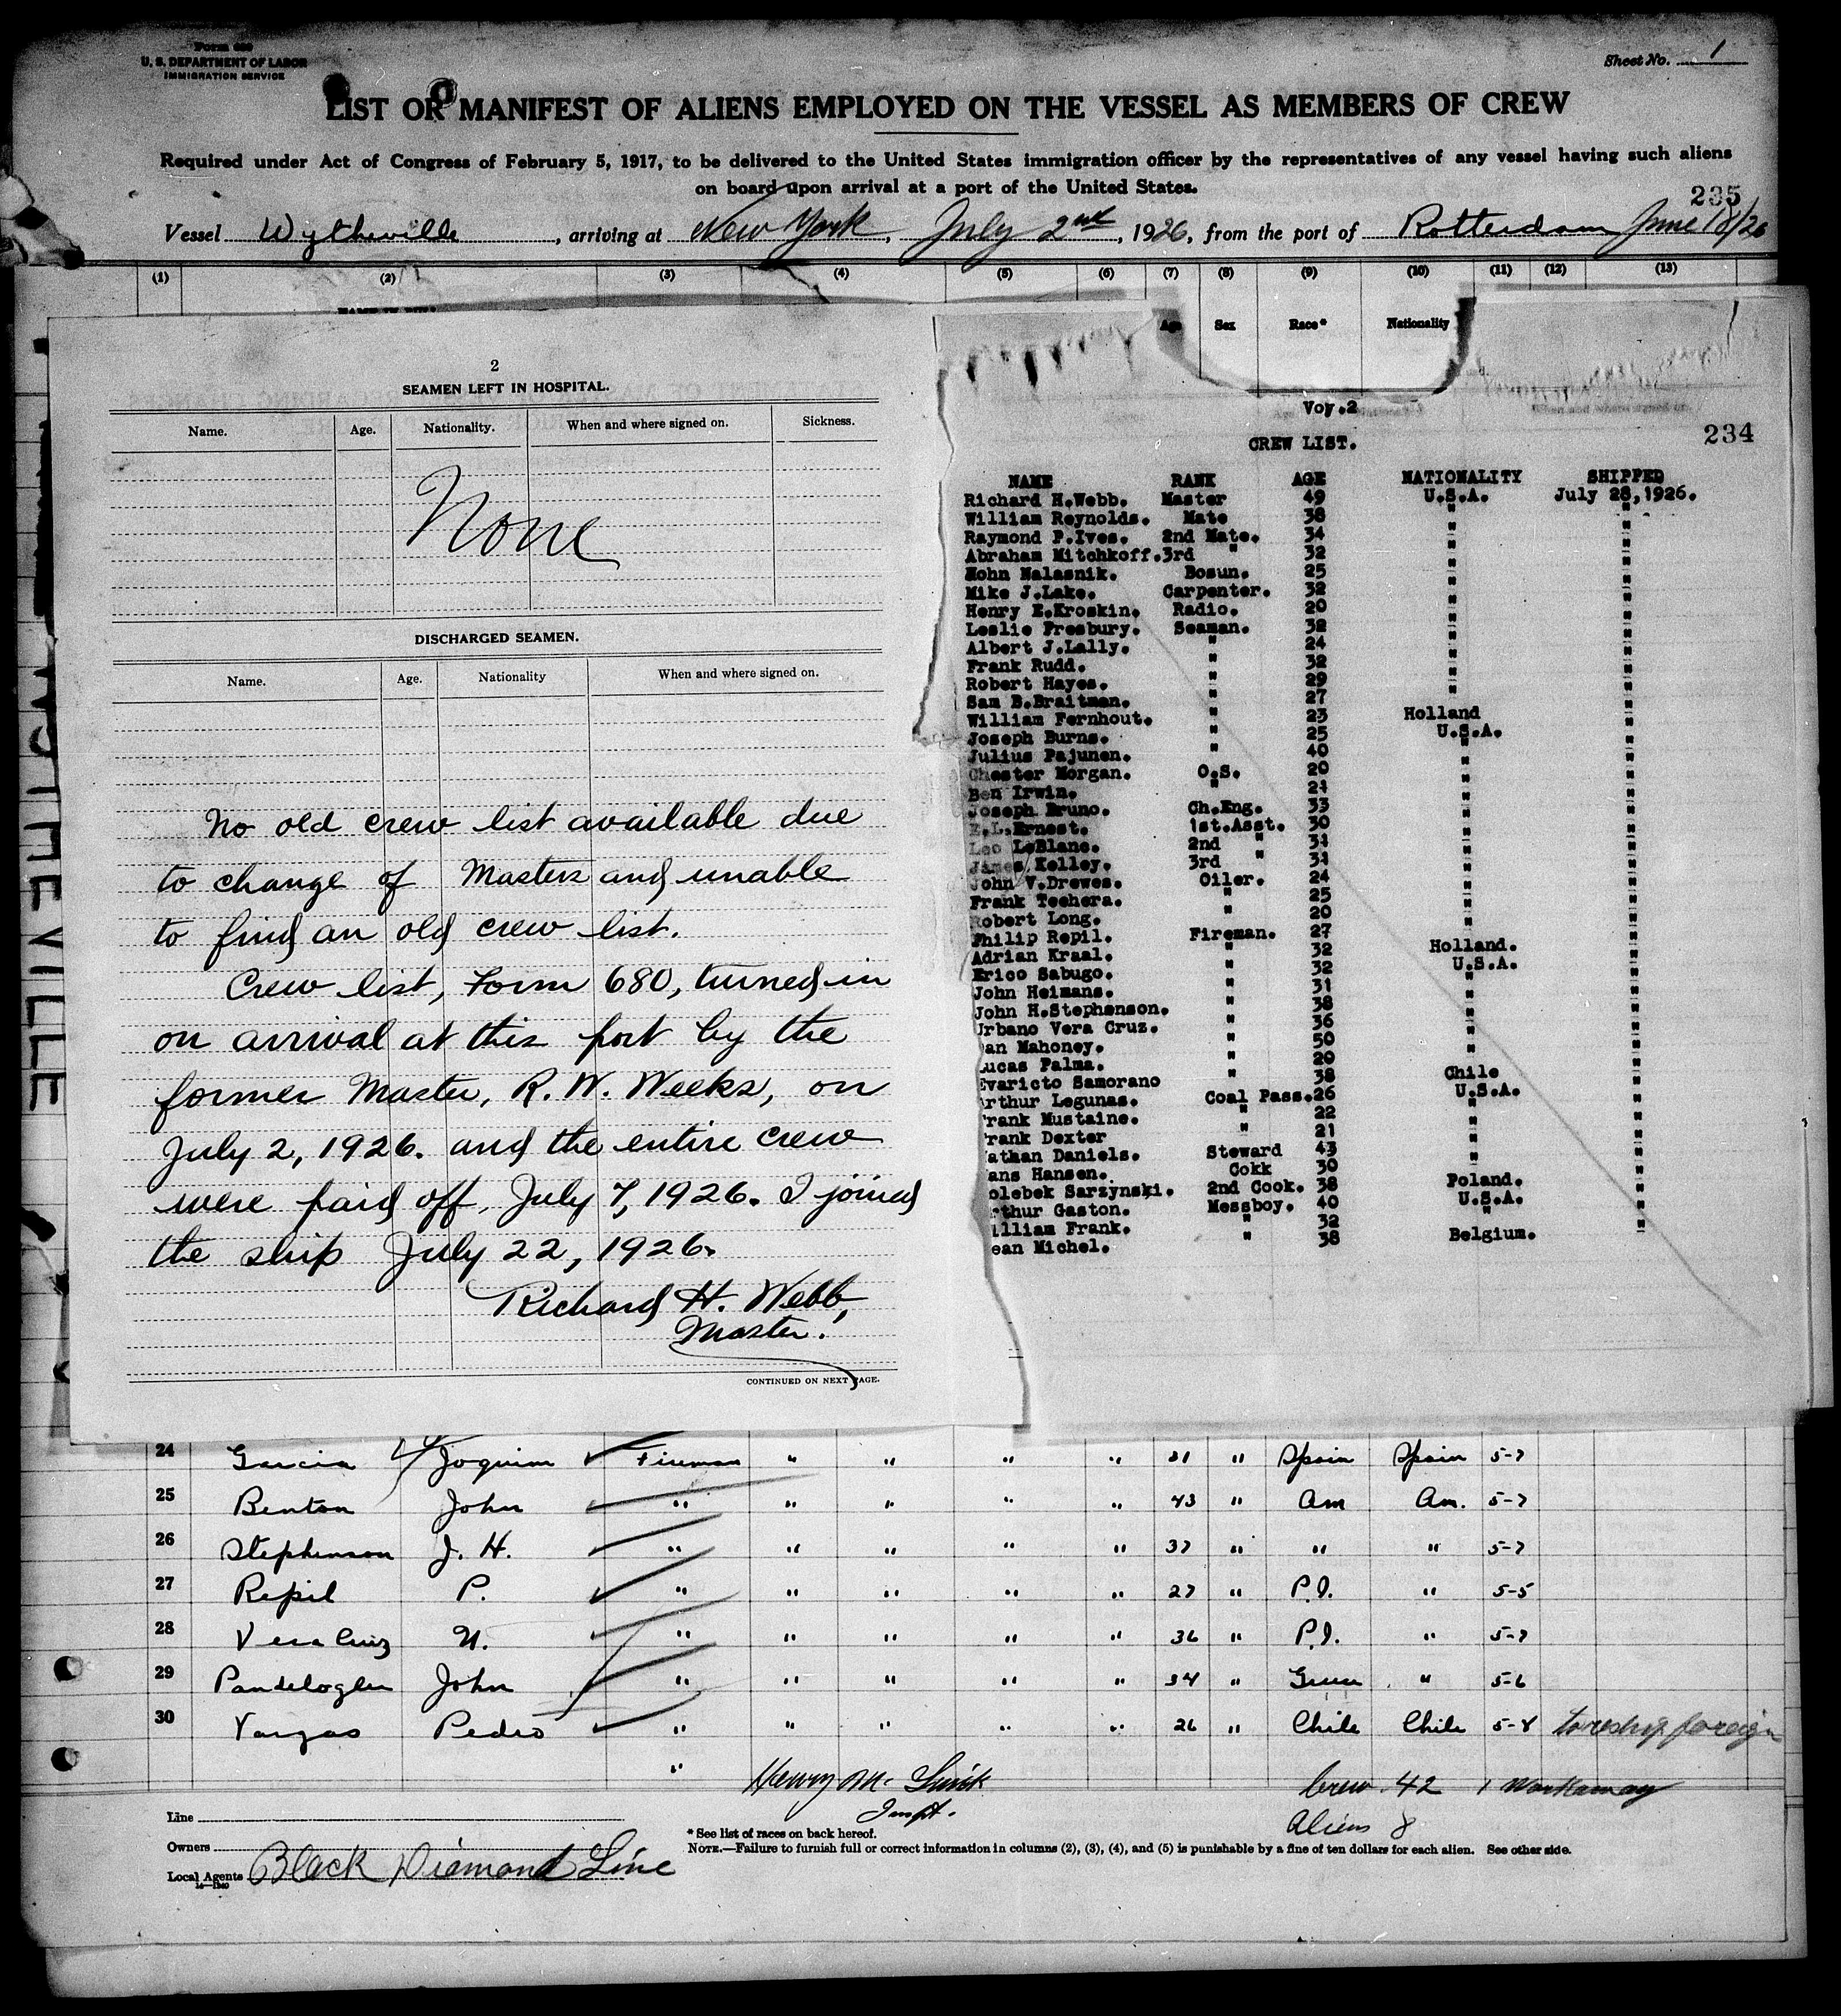 Form 680
U. S. DEPARTMENT OF LABOR
IMMIGRATION SERVICE
Sheet No. 1
LIST OR MANIFEST OF ALIENS EMPLOYED ON THE VESSEL AS MEMBERS OF CREW
Required under Act of Congress of February 5, 1917, to be delivered to the United States immigration officer by the representatives of any vessel having such aliens
on board upon arrival at a port of the United States.
235
Vessel Wytheville, arriving at New York, July 2nd, 1926, from the port of Rotterdam June 18/26
(1) (2) (3) (4) (5) (6) (7) (8) (9) (10) (11) (12) (13)
Age Sex Race* Nationality
2
SEAMEN LEFT IN HOSPITAL.
Name. Age. Nationality. When and where signed on. Sickness.
None
DISCHARGED SEAMEN.
Name. Age. Nationality When and where signed on.
No old crew list available due
to change of Masters and unable
to find an old crew list.
Crew list, Form 680, turned in
on arrival at this port by the
former Master, R. W. Weeks, on
July 2, 1926. and the entire crew
were paid off, July 7, 1926. I joined
the ship July 22, 1926.
Richard H. Webb,
Master.
CONTINUED ON NEXT PAGE.
Voy.2
CREW LIST.
234
NAME RANK AGE NATIONALITY SHIPPED
Richard H.Webb. Master 49 U.S.A. July 28,1926.
William Reynolds. Mate 38 " "
Raymond P.Ives. 2nd Mate. 34 " "
Abraham Mitchkoff. 3rd " 32 " "
Hohn Halasnik. Bosun. 25 " "
Mike J.Lake. Carpenter. 32 " "
Henry E.Kroskin. Radio. 20 " "
Leslie Presbury. Seaman. 32 " "
Albert J.Lally. " 24 " "
Frank Rudd. " 32 " "
Robert Hayes. " 29 " "
Sam B.Braitman. " 27 " "
William Fernhout. " 23 Holland "
Joseph Burns. " 25 U.S.A. "
Julius Pajunen. " 40 " "
Chester Morgan. O.S. 20 " "
Ben Irwin. " 21 " "
Joseph Bruno. Ch.Eng. 33 " "
E.L.Ernest. 1st.Asst. 30 " "
Leo LeBlanc. 2nd " 31 " "
James Kelley. 3rd " 31 " "
John V.Drewes. Oiler. 24 " "
Frank Techera. " 25 " "
Robert Long. " 20 " "
Philip Repil. Fireman. 27 " "
Adrian Kraal. " 32 Holland. "
Erico Sabugo. " 32 U.S.A. "
John Heimans. " 31 " "
John H.Stephenson. " 38 " "
Urbano Vera Cruz. " 36 " "
an Mahoney. " 50 " "
ucas Palma. " 20 " "
Evaricto Samorano " 38 Chile "
rthur Legunas. Coal Pass. 26 U.S.A. "
rank Mustaine. " 22 " "
rank Dexter " 21 " "
athan Daniels. Steward 43 " "
ans Hansen. Cokk 30 " "
olebek Sarzynski. 2nd Cook. 38 Poland. "
rthur Gaston. Messboy. 40 U.S.A. "
illiam Frank. " 32 " "
ean Michel. " 38 Belgium. "
WYTHEVILLE
24 Garcia Joquim Fireman " " " " 31 " Spain Spain 5-7
25 Benton John " " " " " 43 " Am Am. 5-7
26 Stephenson J. H. " " " " " 37 " " " 5-7
27 Repil P. " " " " " 27 " P.I. " 5-5
28 Vera Cruz U. " " " " " 36 " P.I. " 5-7
29 John " " " " " 34 " " 5-6
30 Vargas Pedro " " " " " 26 " Chile Chile 5-8 to reship foreign
"
Henry
Inspt.
Crew 42 1 Workaway
Aliens 8
Line
Owners
Local Agents Black Diamond Line
* See list of races on back hereof.
NOTE.—Failure to furnish full or correct information in columns (2), (3), (4), and (5) is punishable by a fine of ten dollars for each alien. See other side.